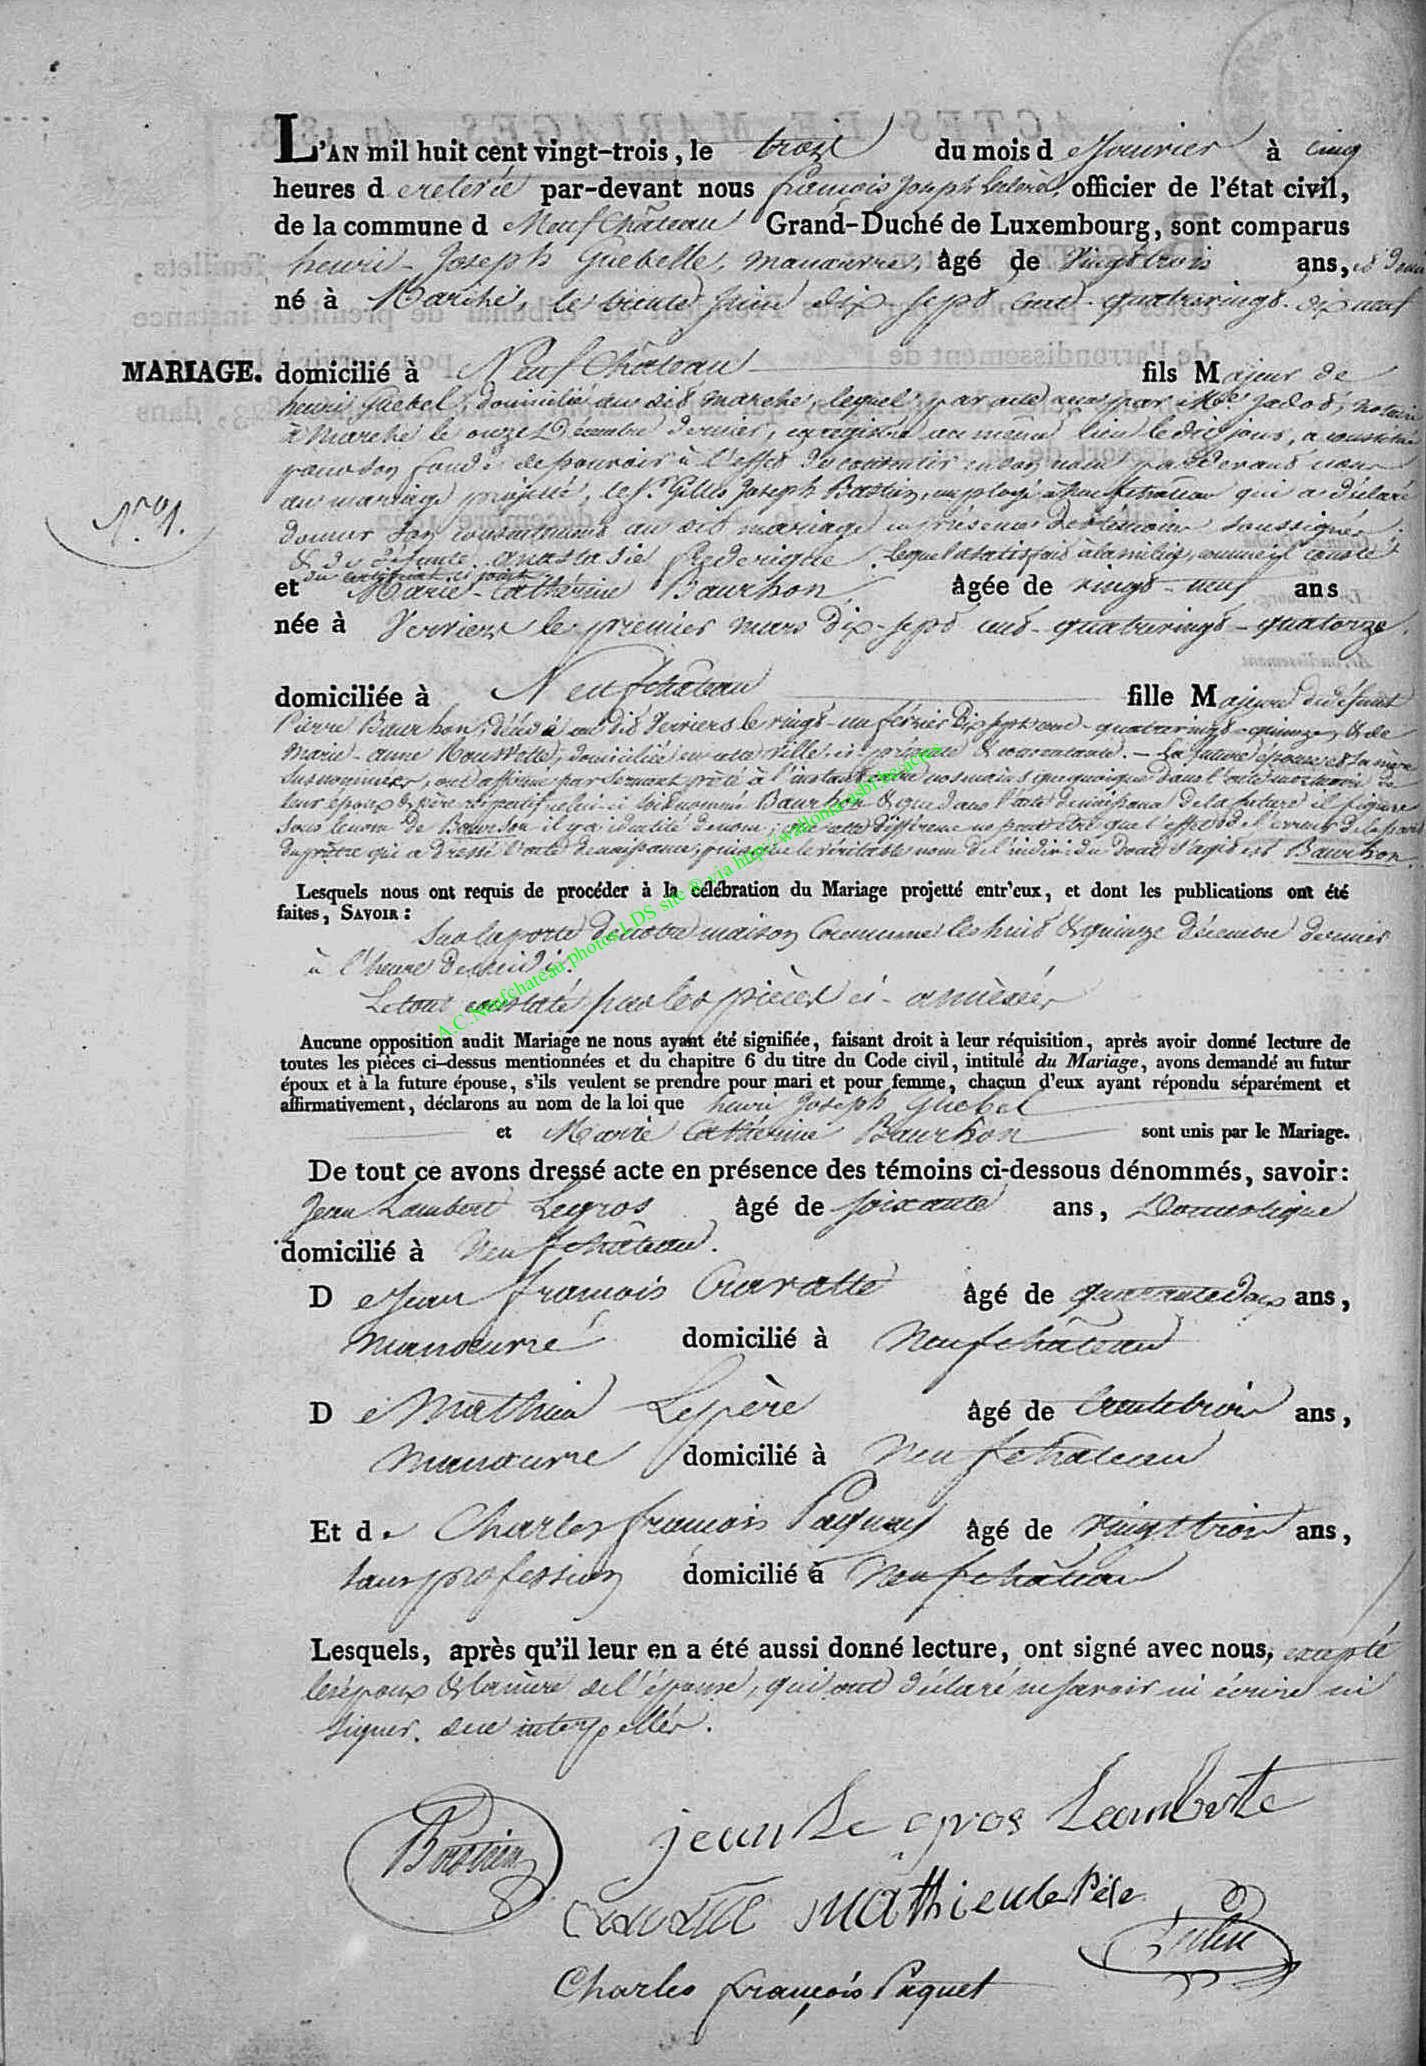 L'AN mil huit cent vingt-trois, le trois du mois de Janvier à cinq
heures de relevée par-devant nous françois Joseph officier de l'état civil,
de la commune d Neufchâteau Grand-Duché de Luxembourg, sont comparus
henri Joseph Guebelle, manœuvre, âgé de vingt trois ans, et demi
né à Marche, le trente Juin dix-sept cent quatrevingt-dix neuf
MARIAGE. domicilié à Neufchâteau fils Majeur de
henri Guebel, domicilié au dit marche, lequel par acte reçu par Me. Jadot, notaire
à Marche le onze Décembre dernier, enregistré au même lieu le dit jour, a constitué
pour son fondé de pouvoir à l'effet de consentir en son nom pardevant nous
N°. 1.
au mariage projetté, le Sr. Gilles Joseph Bastin, employé à Neufchâteau qui a déclaré
donner son consentement au dit mariage en présence des témoins soussignés
& de défunte anastasie frederique. lequel a satisfait à la milice, comme il conste
du certificat ci joint
et Marie-Cathérine Baurhon âgée de vingt-neuf ans
née à Verviers le premier mars dix-sept cent-quatrevingt-quatorze
domiciliée à Neufchâteau fille Majeure du défunt
Pierre Baurhon, décédé au dit Verviers le vingt-un février dix sept cent-quatrevingt-quinze, & de
marie-anne domiciliée en cette ville, ci présente & consentante. - La future épouse & sa mère
susnommées, ont affirmé par serment prêté à l'instant entre nos mains que quoique dans l'acte mortuaire de
leur époux & père respectif celui-ci soit nommé Baurhon & que dans l'acte de naissance de la future il figure
sous le nom de il y a identité de nom, que cette différence ne peut être que l'effet de l'erreur de la part
du prêtre qui a dressé l'acte de naissance, puisque le véritable nom de l'individu dont s'agit est Baurhon.
Lesquels nous ont requis de procéder à la célébration du Mariage projetté entr'eux, et dont les publications ont été
faites, SAVOIR :
Sur la porte de notre maison Commune les huit & quinze décembre dernier
à l'heure de midi.
Le tout constaté par les pièces ci-annexées
A.C. Neufchateau photos LDS site ® via http://wallonia-asbl.be/actes
Aucune opposition audit Mariage ne nous ayant été signifiée, faisant droit à leur réquisition, après avoir donné lecture de
toutes les pièces ci-dessus mentionnées et du chapitre 6 du titre du Code civil, intitulé du Mariage, avons demandé au futur
époux et à la future épouse, s'ils veulent se prendre pour mari et pour femme, chacun d'eux ayant répondu séparément et
affirmativement, déclarons au nom de la loi que henri Joseph Guebel
et Marie Cathérine Baurhon sont unis par le Mariage.
De tout ce avons dressé acte en présence des témoins ci-dessous dénommés, savoir :
Jean Lambert Legros âgé de soixante ans, Domestique
domicilié à Neufchâteau.
D e Jean françois Cravatte âgé de quarante deux ans,
manœuvre domicilié à Neufchâteau
D e Mathieu Lepère âgé de trente trois ans,
manœuvre domicilié à Neufchâteau
Et de Charles françois Paquay âgé de vingt trois ans,
sans profession domicilié à Neufchâteau
Lesquels, après qu'il leur en a été aussi donné lecture, ont signé avec nous, excepté
les époux & la mère de l'épouse, qui ont déclaré ne savoir ni écrire ni
signer. de ce interpellés.
Bastin
jean Le gros Lamberte
Mathieu le Père
Charles françois Paquet